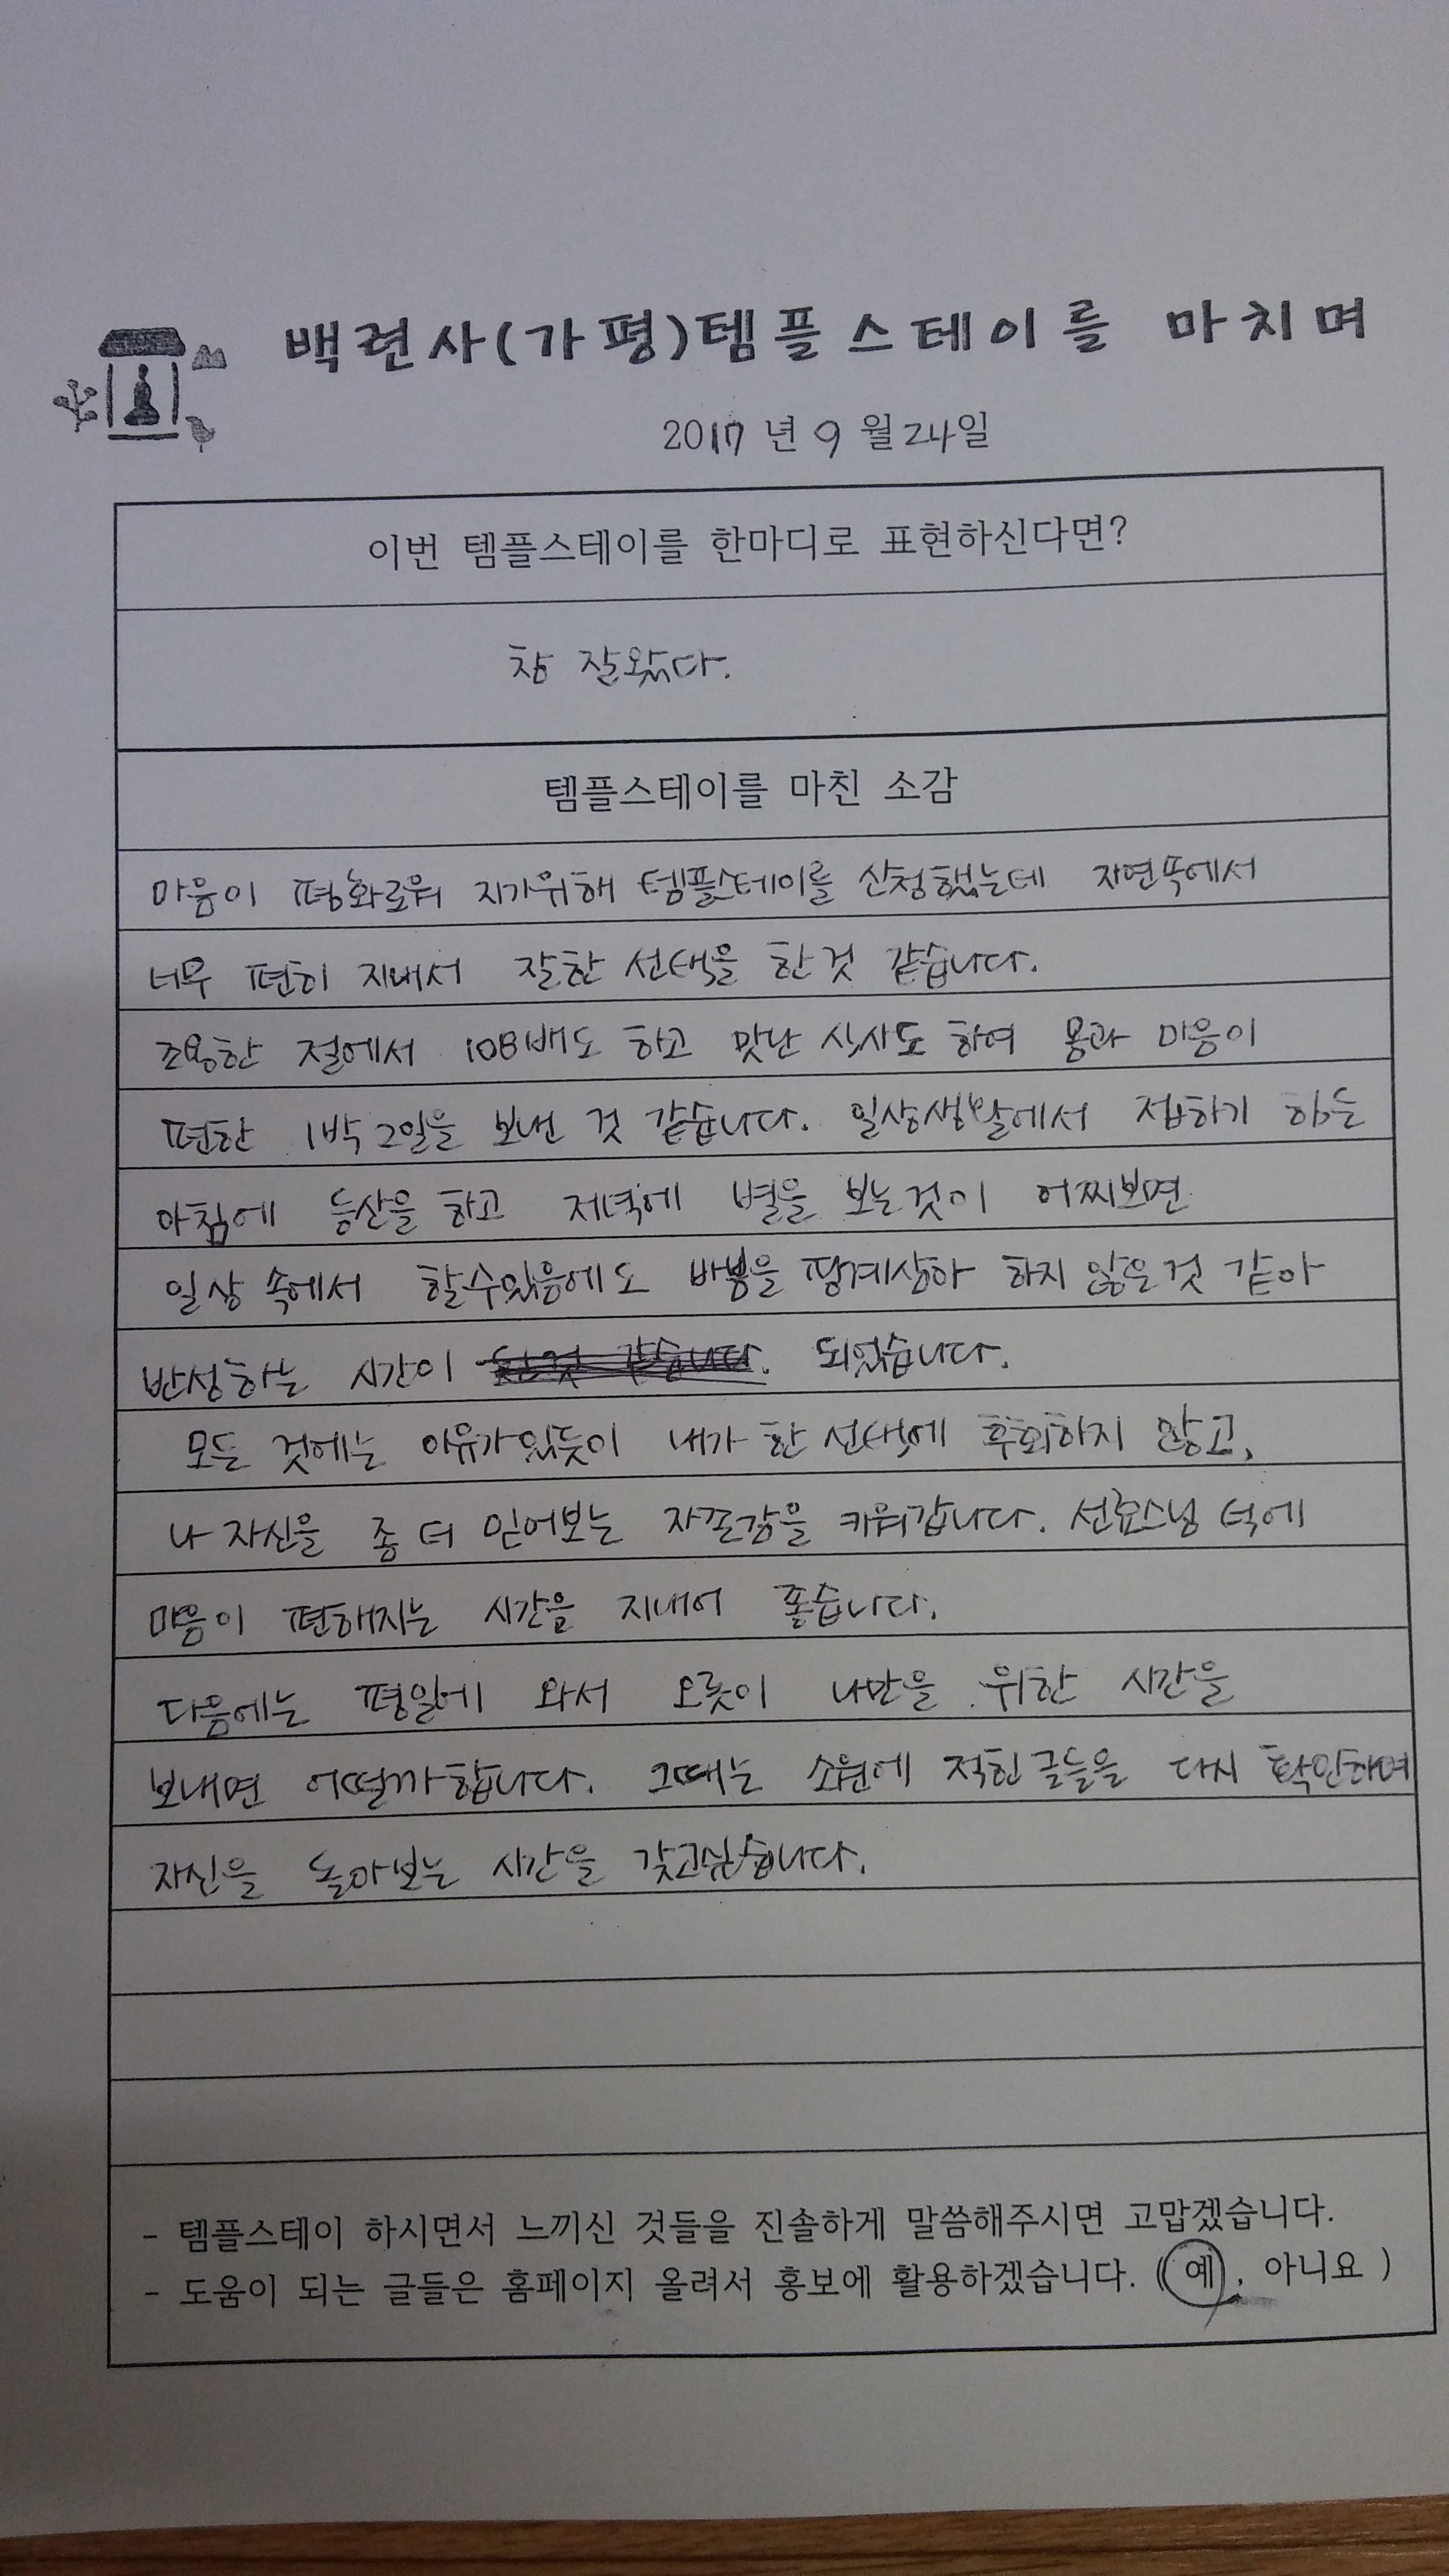 백련사(가평)템플스테이를 마치며
2017 년 9 월 24일
이번 템플스테이를 한마디로 표현하신다면?
참 잘왔다.
템플스테이를 마친 소감
마음이 평화로워 지기위해 템플스테이를 신청했는데 자연속에서
너무 편히 지내서 잘한 선택을 한것 같습니다.
조용한 절에서 108배도 하고 맛난 식사도 하여 몸과 마음이
편한 1박2일을 보낸 것 같습니다. 일상생활에서 접하기 힘든
아침에 등산을 하고 저녁에 별을 보는것이 어찌보면
일상 속에서 할수있음에도 바쁨을 핑계삼아 하지 않은것 같아
반성하는 시간이 되었습니다.
모든 것에는 이유가있듯이 내가 한 선택에 후회하지 않고,
나 자신을 좀 더 믿어보는 자존감을 키워갑니다. 선효스님 덕에
마음이 편해지는 시간을 지내어 좋습니다.
다음에는 평일에 와서 오롯이 나만을 위한 시간을
보내면 어떨까합니다. 그때는 소원에 적힌글들을 다시 확인하며
자신을 돌아보는 시간을 갖고싶습니다.
- 템플스테이 하시면서 느끼신 것들을 진솔하게 말씀해주시면 고맙겠습니다.
- 도움이 되는 글들은 홈페이지 올려서 홍보에 활용하겠습니다. ( 예 , 아니요 )